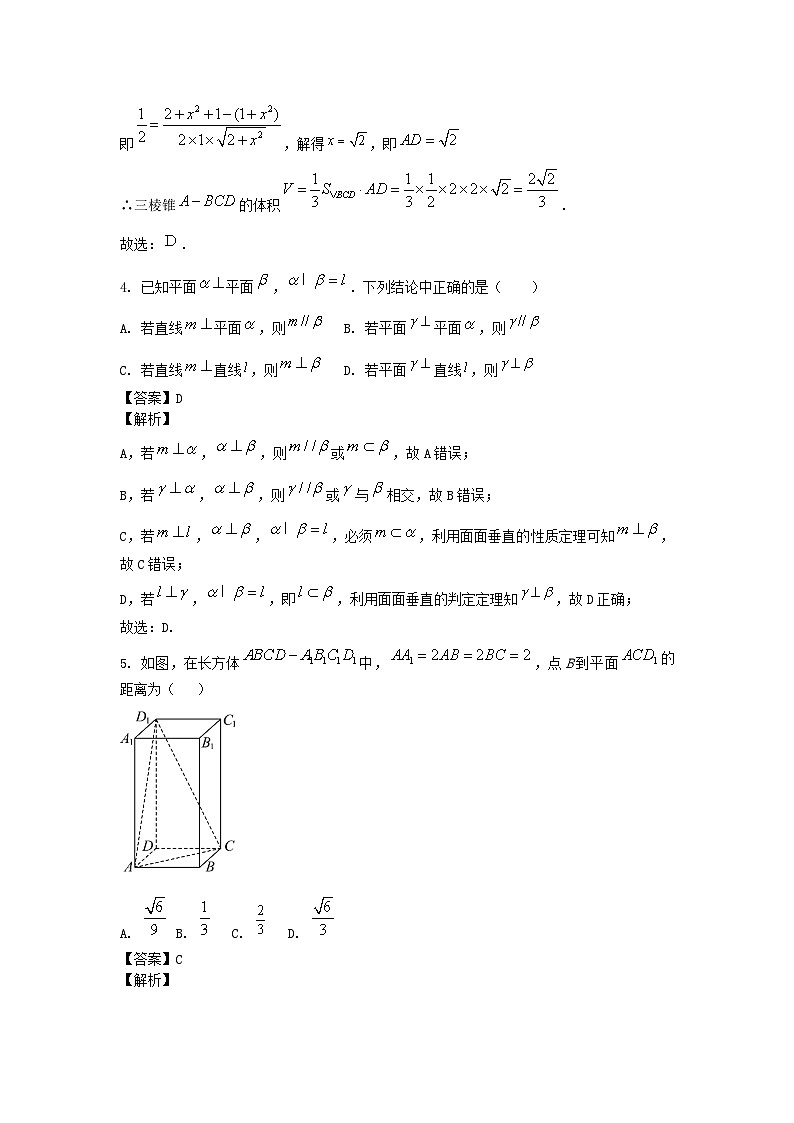 即 1/2 = (2+x²+1−(1+x²))/(2×1×√(2+x²)) ,解得 x = √2 ,即 AD = √2
∴三棱锥 A−BCD 的体积 V = 1/3 S▽BCD · AD = 1/3 × 1/2 × 2 × 2 × √2 = 2√2/3 .
故选: D .
4. 已知平面 α ⊥ 平面 β , α | β = l . 下列结论中正确的是( )
A. 若直线 m ⊥ 平面 α ,则 m // β B. 若平面 γ ⊥ 平面 α ,则 γ // β
C. 若直线 m ⊥ 直线 l ,则 m ⊥ β D. 若平面 γ ⊥ 直线 l ,则 γ ⊥ β
【答案】D
【解析】
A,若 m ⊥ α , α ⊥ β ,则 m // β 或 m ⊂ β ,故 A 错误;
B,若 γ ⊥ α , α ⊥ β ,则 γ // β 或 γ 与 β 相交,故 B 错误;
C,若 m ⊥ l , α ⊥ β , α | β = l ,必须 m ⊂ α ,利用面面垂直的性质定理可知 m ⊥ β ,
故 C 错误;
D,若 l ⊥ γ , α | β = l ,即 l ⊂ β ,利用面面垂直的判定定理知 γ ⊥ β ,故 D 正确;
故选:D.
5. 如图,在长方体 ABCD − A₁B₁C₁D₁ 中, AA₁ = 2AB = 2BC = 2 ,点 B 到平面 ACD₁ 的
距离为( )
D₁ C₁
A₁ B₁
D C
A B
A. √6/9 B. 1/3 C. 2/3 D. √6/3
【答案】C
【解析】